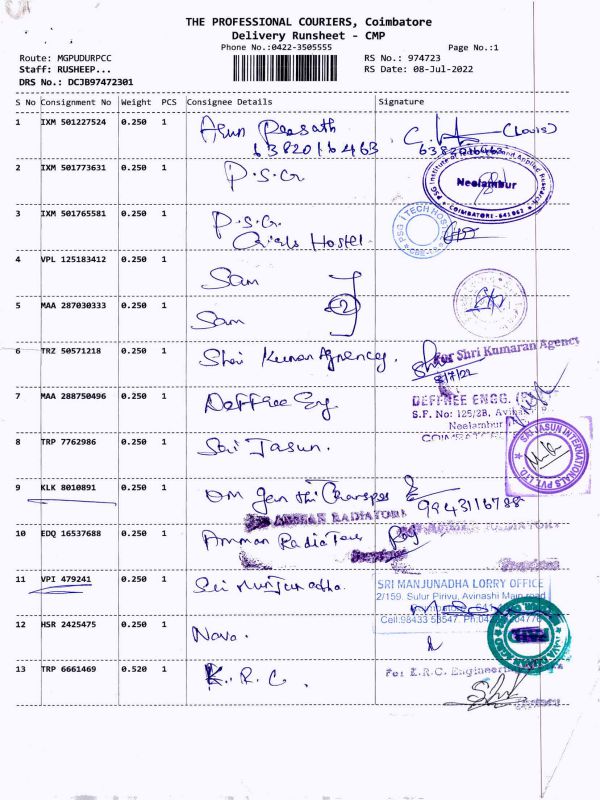 THE PROFESSIONAL COURIERS, Coimbatore
Delivery Runsheet - CMP
Phone No.:0422-3505555 Page No.:1
Route: MGPUDURPCC RS No.: 974723
Staff: RUSHEEP... RS Date: 08-Jul-2022
DRS No.: DCJB97472301
S No Consignment No Weight PCS Consignee Details Signature
1 IXM 501227524 0.250 1 Arun Prasath (Louis)
6382016463 6382016463
2 IXM 501773631 0.250 1 P.S.G. Neelambur
COIMBATORE - 641 062
3 IXM 501765581 0.250 1 P.S.G. PSG i TECH HOSTEL
Girls Hostel
4 VPL 125183412 0.250 1 Sam
5 MAA 287030333 0.250 1 Sam 2
6 TRZ 50571218 0.250 1 Shri Kumaran Agency. For Shri Kumaran Agency
8/7/22
7 MAA 288750496 0.250 1 Deffree Eng DEFFREE ENGG.
S.F. No: 125/2B,
Neelambur
8 TRP 7762986 0.250 1 Sai Jasun. SAI JASUN INTERNATIONALS PVT. LTD.
9 KLK 8010891 0.250 1 Om 9943116788
AMMAN RADIATORS
10 EDQ 16537688 0.250 1 Amman Radiators
11 VPI 479241 0.250 1 Sri Manjunadha. SRI MANJUNADHA LORRY OFFICE
2/159, Sulur Pirivu, Avinashi Main road
Cell:98433 53547
12 HSR 2425475 0.250 1 Novo.
13 TRP 6661469 0.520 1 K.R.C. For K.R.C. Engineering